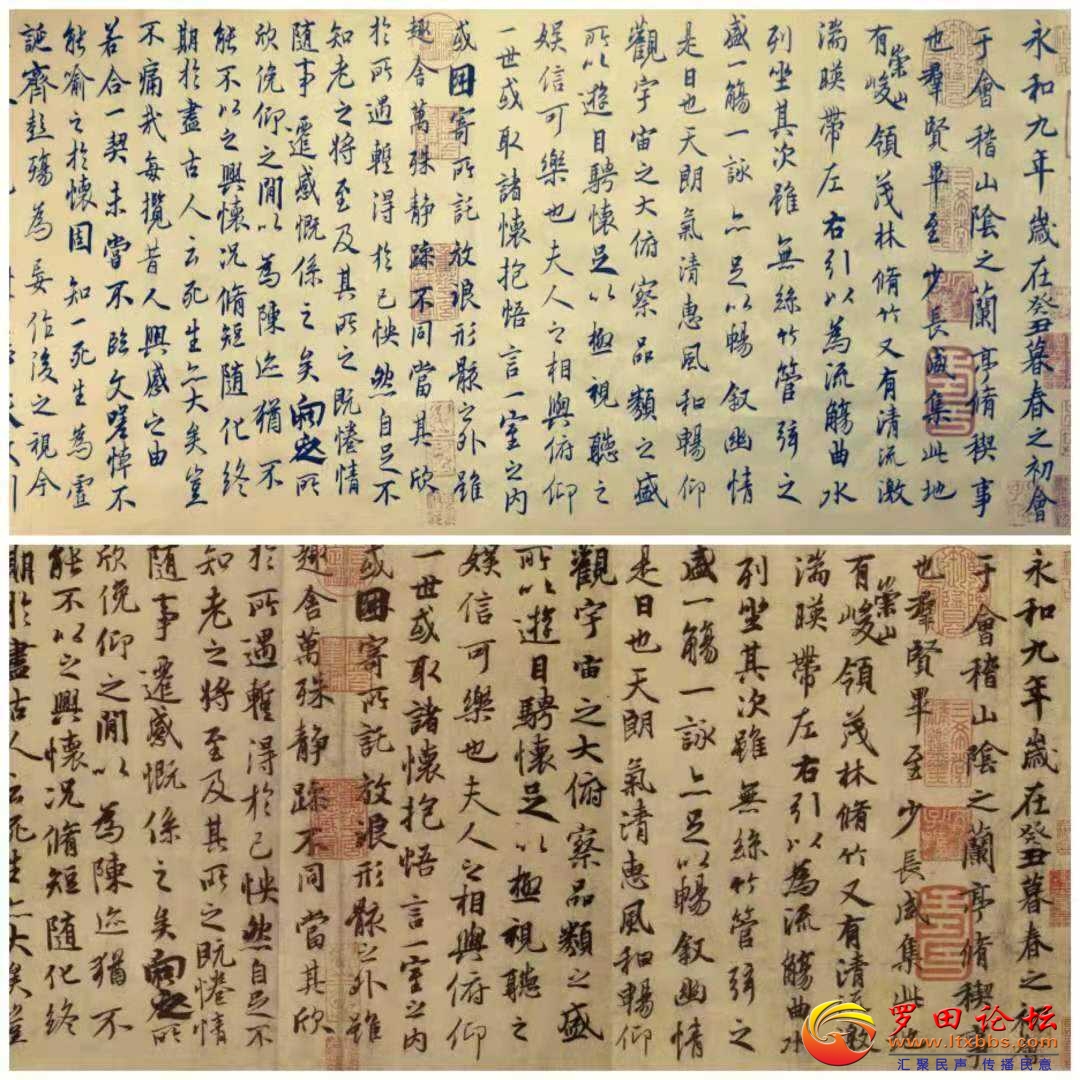 永和九年歲在癸丑暮春之初會
于會稽山陰之蘭亭脩稧事
也羣賢畢至少長咸集此地
有崇山峻領茂林脩竹又有清流激
湍暎帶左右引以為流觴曲水
列坐其次雖無絲竹管弦之
盛一觴一詠亦足以暢敘幽情
是日也天朗氣清惠風和暢仰
觀宇宙之大俯察品類之盛
所以遊目騁懷足以極視聽之
娛信可樂也夫人之相與俯仰
一世或取諸懷抱悟言一室之內
或因寄所託放浪形骸之外雖
趣舍萬殊静躁不同當其欣
於所遇暫得於己怏然自足不
知老之將至及其所之既惓情
隨事遷感慨係之矣向之所
欣俛仰之閒以為陳迹猶不
能不以之興懷況脩短隨化終
期於盡古人云死生亦大矣豈
不痛哉每攬昔人興感之由
若合一契未嘗不臨文嗟悼不
能喻之於懷固知一死生為虛
誕齊彭殤為妄作後之視今
永和九年歲在癸丑暮春之初會
于會稽山陰之蘭亭脩稧事
也羣賢畢至少長咸集此
有崇山峻領茂林脩竹又有清流激
湍暎帶左右引以為流觴曲水
列坐其次雖無絲竹管弦之
盛一觴一詠亦足以暢敘幽情
是日也天朗氣清惠風和暢仰
觀宇宙之大俯察品類之盛
所以遊目騁懷足以極視聽之
娛信可樂也夫人之相與俯仰
一世或取諸懷抱悟言一室之內
或因寄所託放浪形骸之外雖
趣舍萬殊静躁不同當其欣
於所遇暫得於己怏然自足不
知老之將至及其所之既惓情
隨事遷感慨係之矣向之所
欣俛仰之閒以為陳迹猶不
能不以之興懷況脩短隨化終
期於盡古人云死生亦大矣豈
罗田论坛
www.ltxbbs.com
汇聚民声 传播民意